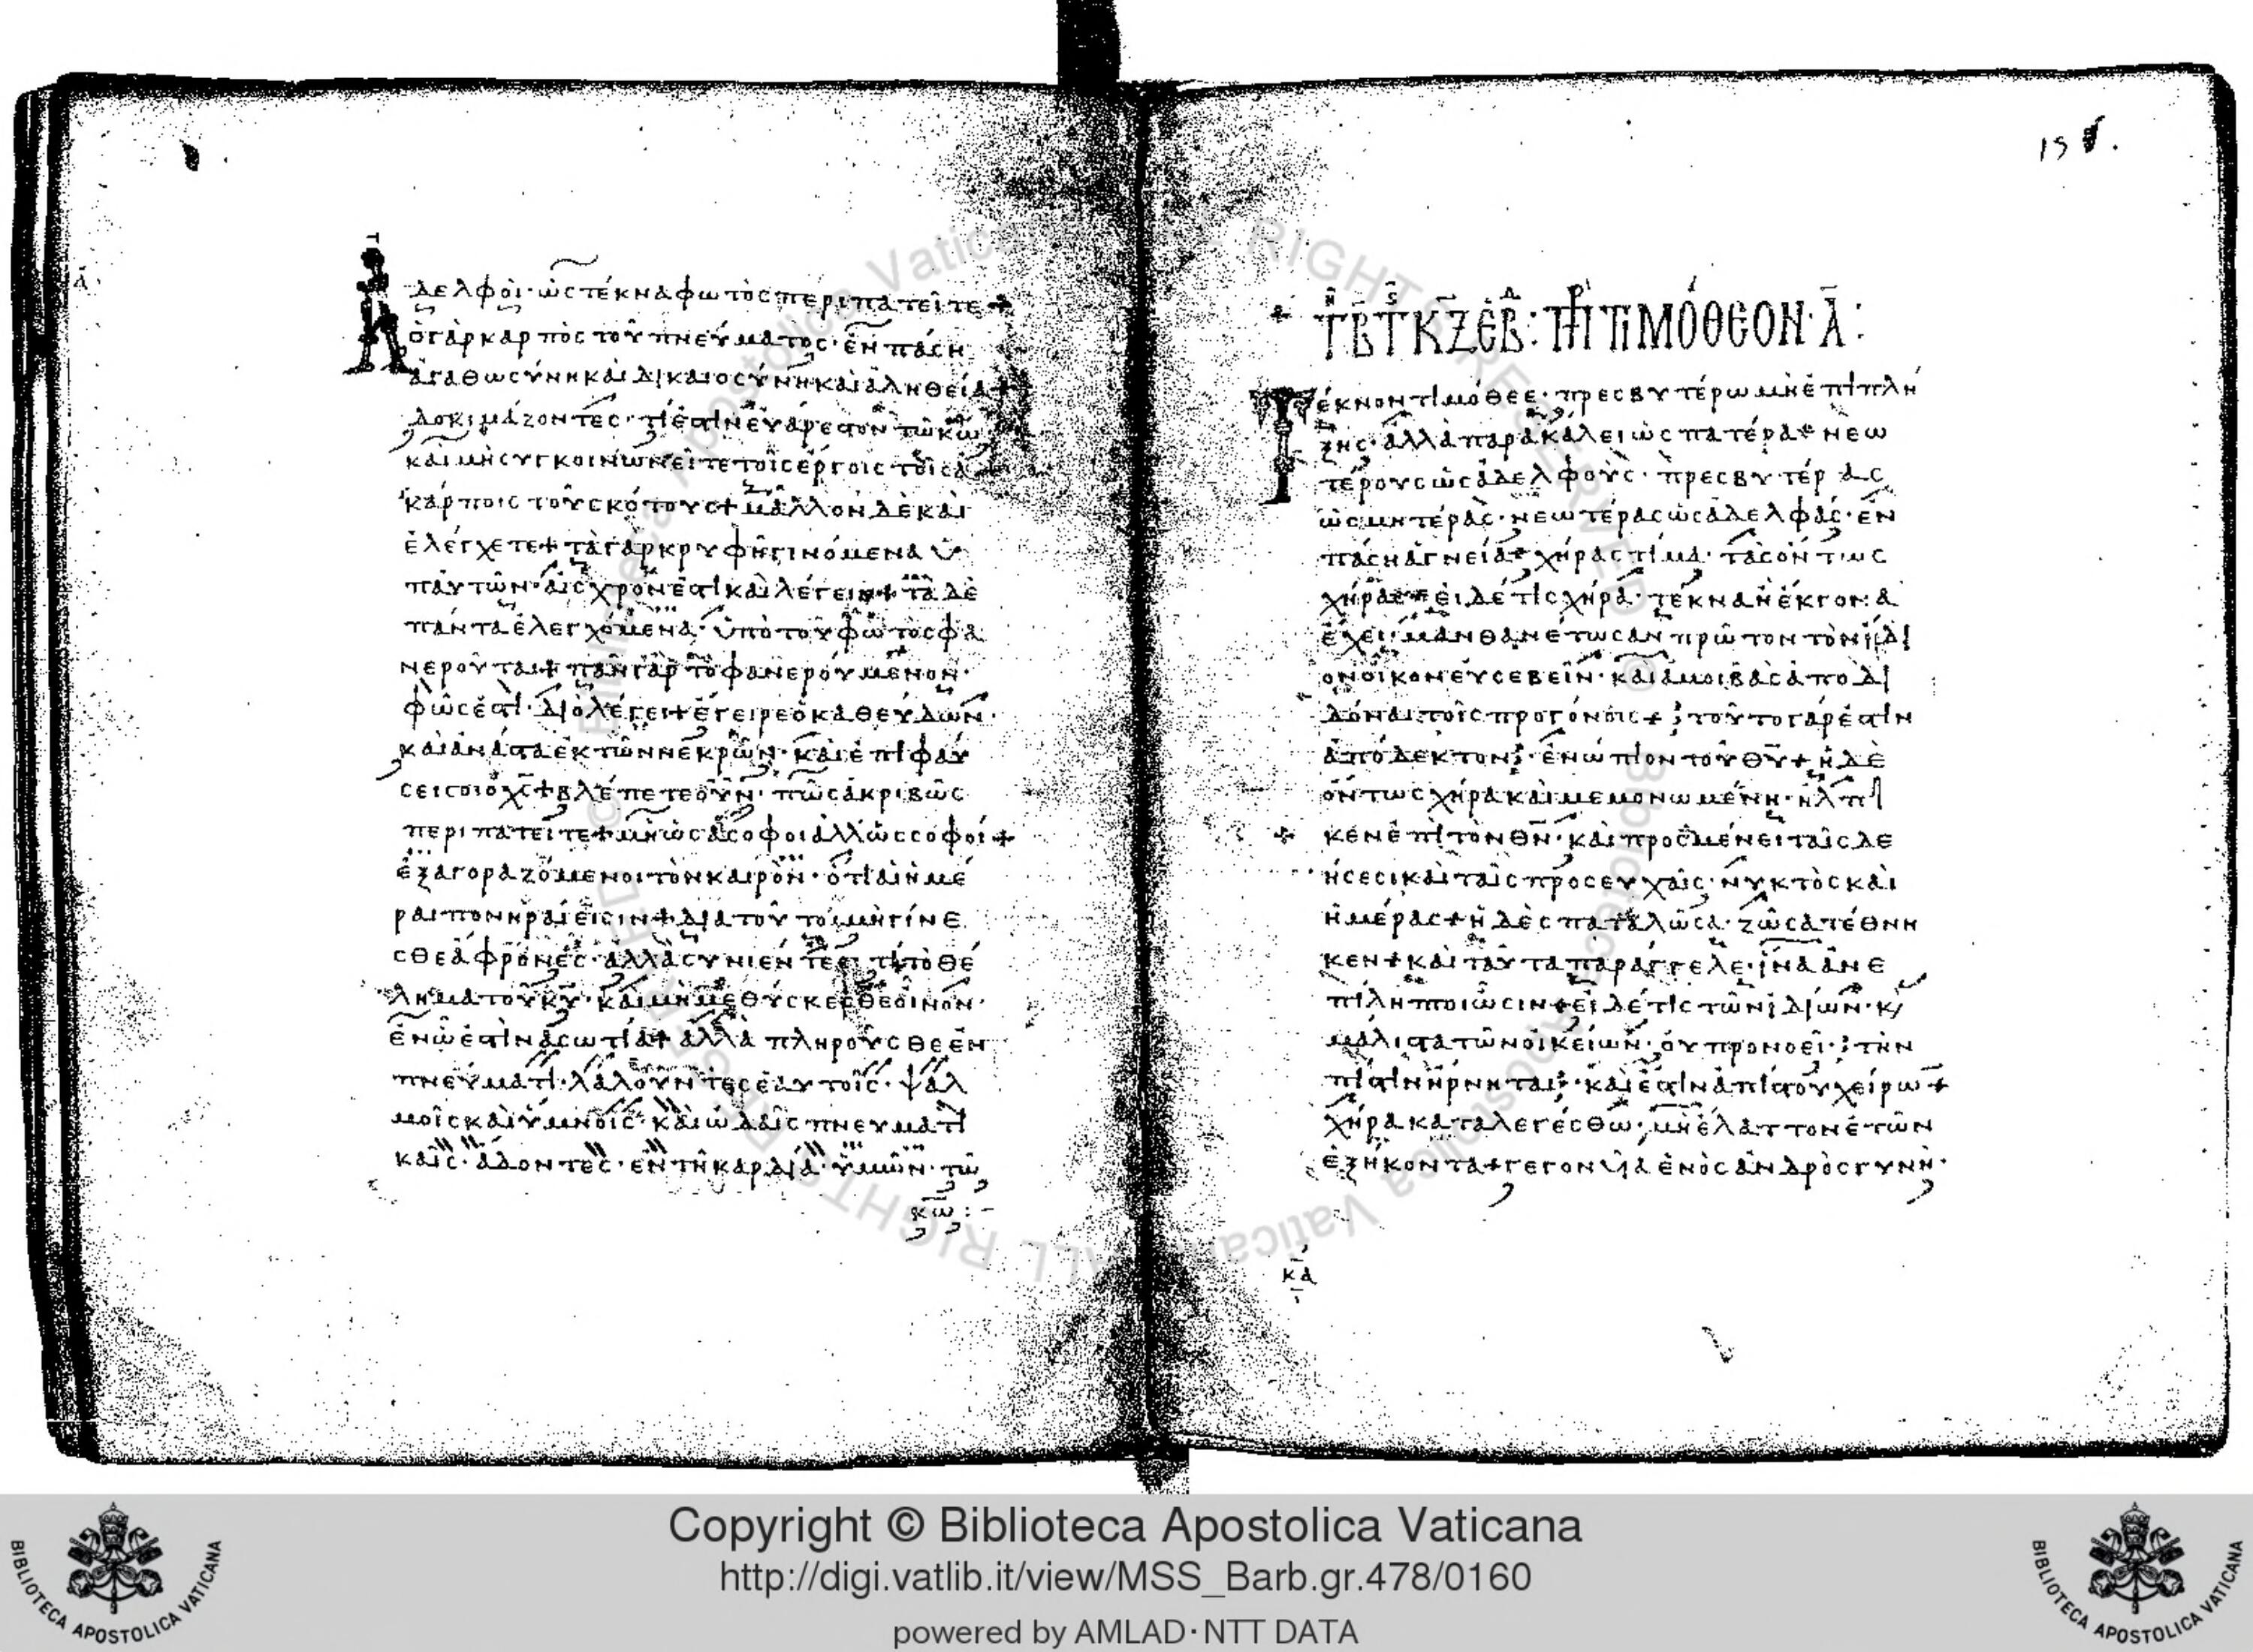 ἀδελφοὶ· ὡς τέκνα φωτὸς περιπατεῖτε +
ὁ γὰρ καρπὸς τοῦ πνεύματος· ἐν πάσῃ
ἀγαθωσύνῃ καὶ δικαιοσύνῃ καὶ ἀληθείᾳ +
δοκιμάζοντες· τί ἐστιν εὐάρεστον τῷ κ̅ω̅
καὶ μὴ συγκοινωνεῖτε τοῖς ἔργοις τοῖς ἀ
κάρποις τοῦ σκότους + μᾶλλον δὲ καὶ
ἐλέγχετε + τὰ γὰρ κρυφῆ γινόμενα ὑ
π' αὐτῶν· αἰσχρόν ἐστι καὶ λέγειν + τὰ δὲ
πάντα ἐλεγχόμενα· ὑπὸ τοῦ φωτὸς φα
νεροῦται + πᾶν γὰρ τὸ φανερούμενον·
φῶς ἐστί· διὸ λέγει + ἔγειρε ὁ καθεύδων·
καὶ ἀνάστα ἐκ τῶν νεκρῶν· καὶ ἐπιφαύ
σει σοι ὁ χ̅ς̅ + βλέπετε οὖν· πῶς ἀκριβῶς
περιπατεῖτε + μὴ ὡς ἄσοφοι ἀλλ' ὡς σοφοί +
ἐξαγοραζόμενοι τὸν καιρὸν· ὅτι αἱ ἡμέ
ραι πονηραί εἰσιν + διατοῦτο μὴ γίνε
σθε ἄφρονες· ἀλλὰ συνιέντες τί τὸ θέ
λημα τοῦ κ̅υ̅· καὶ μὴ μεθύσκεσθε οἴνον·
ἐν ᾧ ἐστιν ἀσωτία + ἀλλὰ πληροῦσθε ἐν
πνεύματι· λαλοῦντες ἑαυτοῖς· ψαλ
μοῖς καὶ ὕμνοις· καὶ ᾠδαῖς πνευματι
καῖς· ἄδοντες· ἐν τῇ καρδίᾳ ὑμῶν· τῷ
κ̅ω̅ :-
Τέκνον τιμόθεε· πρεσβυτέρω μὴ ἐπιπλή
ξης· ἀλλὰ παρακάλει ὡς πατέρα + νεω
τέρους ὡς ἀδελφοὺς· πρεσβυτέρας
ὡς μητέρας· νεωτέρας ὡς ἀδελφάς· ἐν
πάσῃ ἁγνεία + χήρας τίμα· τὰς ὄντως
χήρας + εἰ δέ τις χήρα· τέκνα ἢ ἔκγονα
ἔχει· μανθανέτωσαν πρῶτον τὸν ἴδι
ον οἶκον εὐσεβεῖν· καὶ ἀμοιβὰς ἀποδι
δόναι τοῖς προγόνοις + τοῦτο γάρ ἐστιν
ἀπόδεκτον· ἐνώπιον τοῦ θ̅υ̅ + ἡ δὲ
ὄντως χήρα καὶ μεμονωμένη· ἤλπι
κεν ἐπὶ τὸν θ̅ν̅· καὶ προσμένει ταῖς δε
ήσεσι καὶ ταῖς προσευχαῖς· νυκτὸς καὶ
ἡμέρας + ἡ δὲ σπαταλῶσα· ζῶσα τέθνη
κεν + καὶ ταῦτα παράγγελε· ἵνα ἀνε
πίληπτοι ὦσιν + εἰ δέ τις τῶν ἰδίων· κ/
μάλιστα τῶν οἰκείων· οὐ προνοεῖ· τὴν
πίστιν ἤρνηται· καὶ ἔστιν ἀπίστου χείρω +
χήρα καταλεγέσθω· μὴ ἔλαττον ἐτῶν
ἑξήκοντα + γεγονυῖα ἑνὸς ἀνδρὸς γυνή·
κα
Copyright © Biblioteca Apostolica Vaticana
http://digi.vatlib.it/view/MSS_Barb.gr.478/0160
powered by AMLAD·NTT DATA
BIBLIOTECA APOSTOLICA VATICANA
BIBLIOTECA APOSTOLICA VATICANA